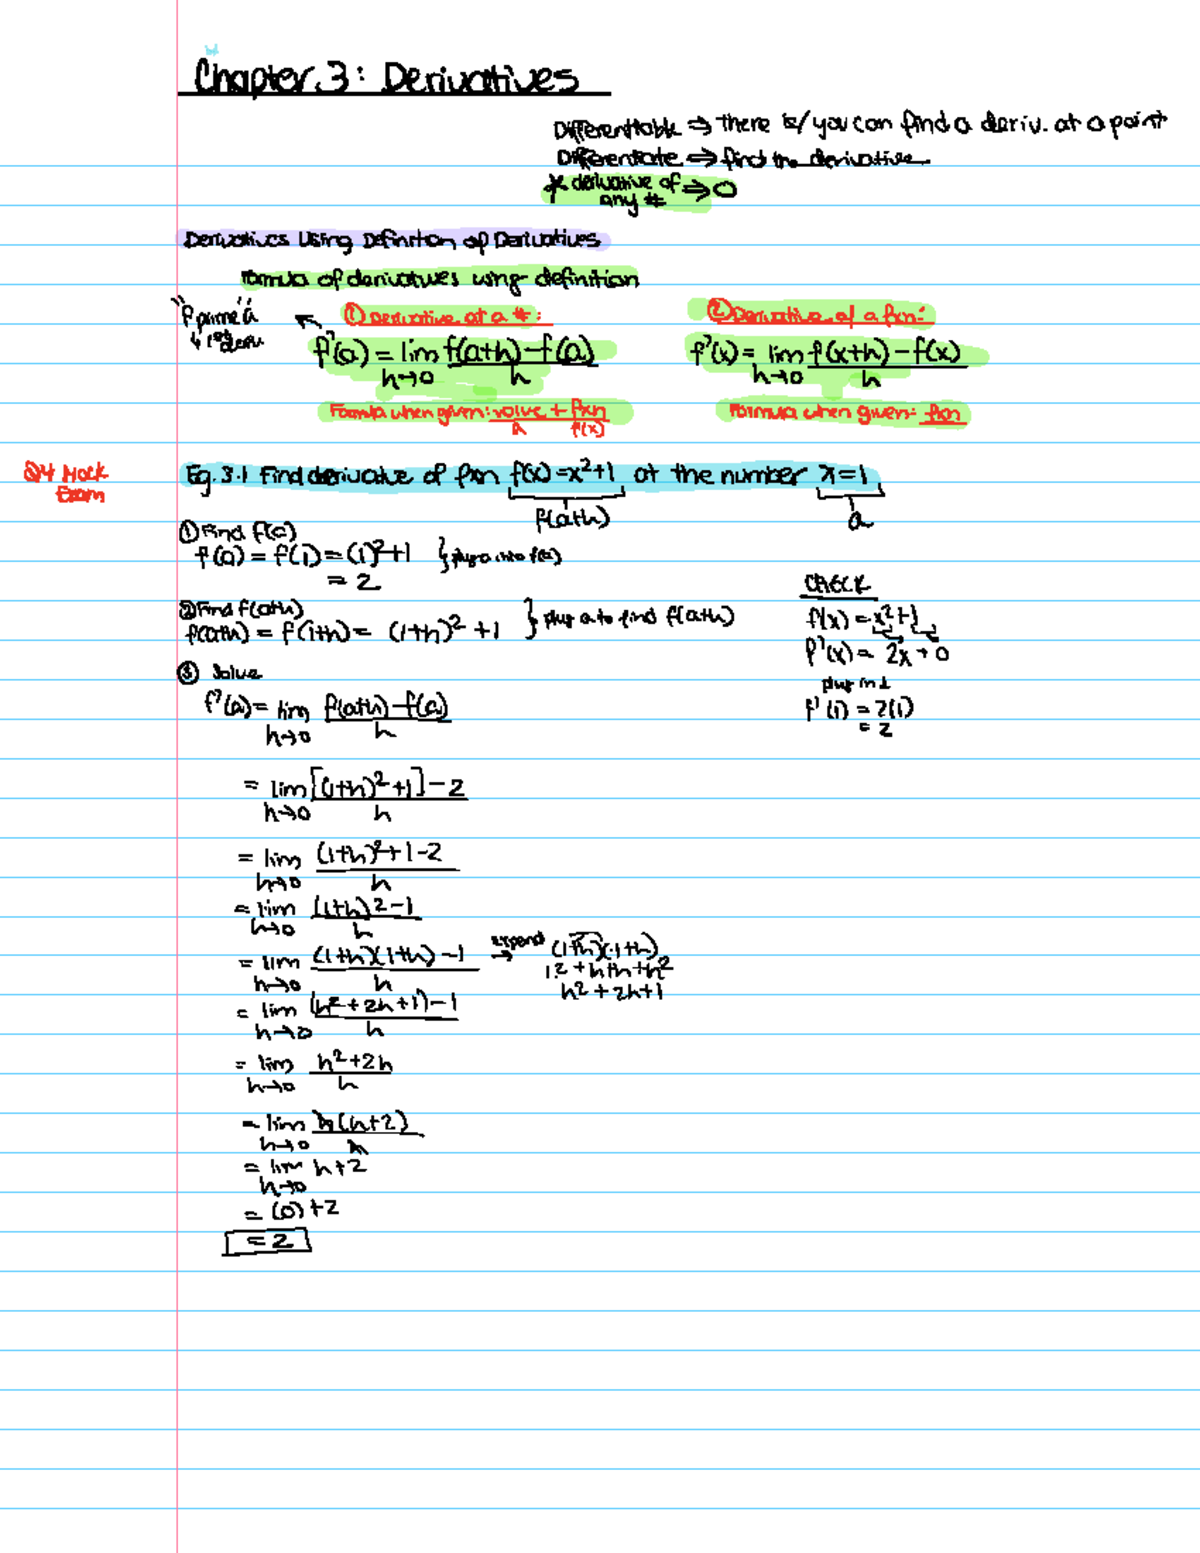 Chapter.3: Derivatives
Differentiable ⇒ there is/you can find a deriv. at a point
Differentiate ⇒ find the derivative
* derivative of any # ⇒ 0
Derivatives Using Definition of Derivatives
Formula of derivatives using definition
"f prime a"
↳ 1st deriv
① Derivative at a #:
f'(a) = lim h→0 f(a+h)-f(a) / h
Formula when given: value + fxn
a f(x)
② Derivative of a fxn:
f'(x) = lim h→0 f(x+h)-f(x) / h
Formula when given: fxn
Q4 Mock Exam
Eg. 3.1 Find derivative of fxn f(x)=x²+1 at the number x=1
f(a+h)
a
① Find f(a)
f(a) = f(1) = (1)²+1 } plug a into f(x)
= 2
② Find f(a+h)
f(a+h) = f(1+h) = (1+h)² +1 } plug a to find f(a+h)
③ Solve
f'(a) = lim h→0 f(a+h)-f(a) / h
= lim h→0 [(1+h)²+1]-2 / h
= lim h→0 (1+h)²+1-2 / h
= lim h→0 (1+h)2-1 / h
= lim h→0 (1+h)(1+h)-1 / h
expand → (1+h)(1+h)
12+h+h+h2
h2+2h+1
= lim h→0 (h²+2h+1)-1 / h
= lim h→0 h2+2h / h
= lim h→0 h(h+2) / h
= lim h→0 h+2
= (0)+2
= 2
CHECK
f(x) = x²+1
f'(x) = 2x+0
plug in 1
f'(1) = 2(1)
= 2